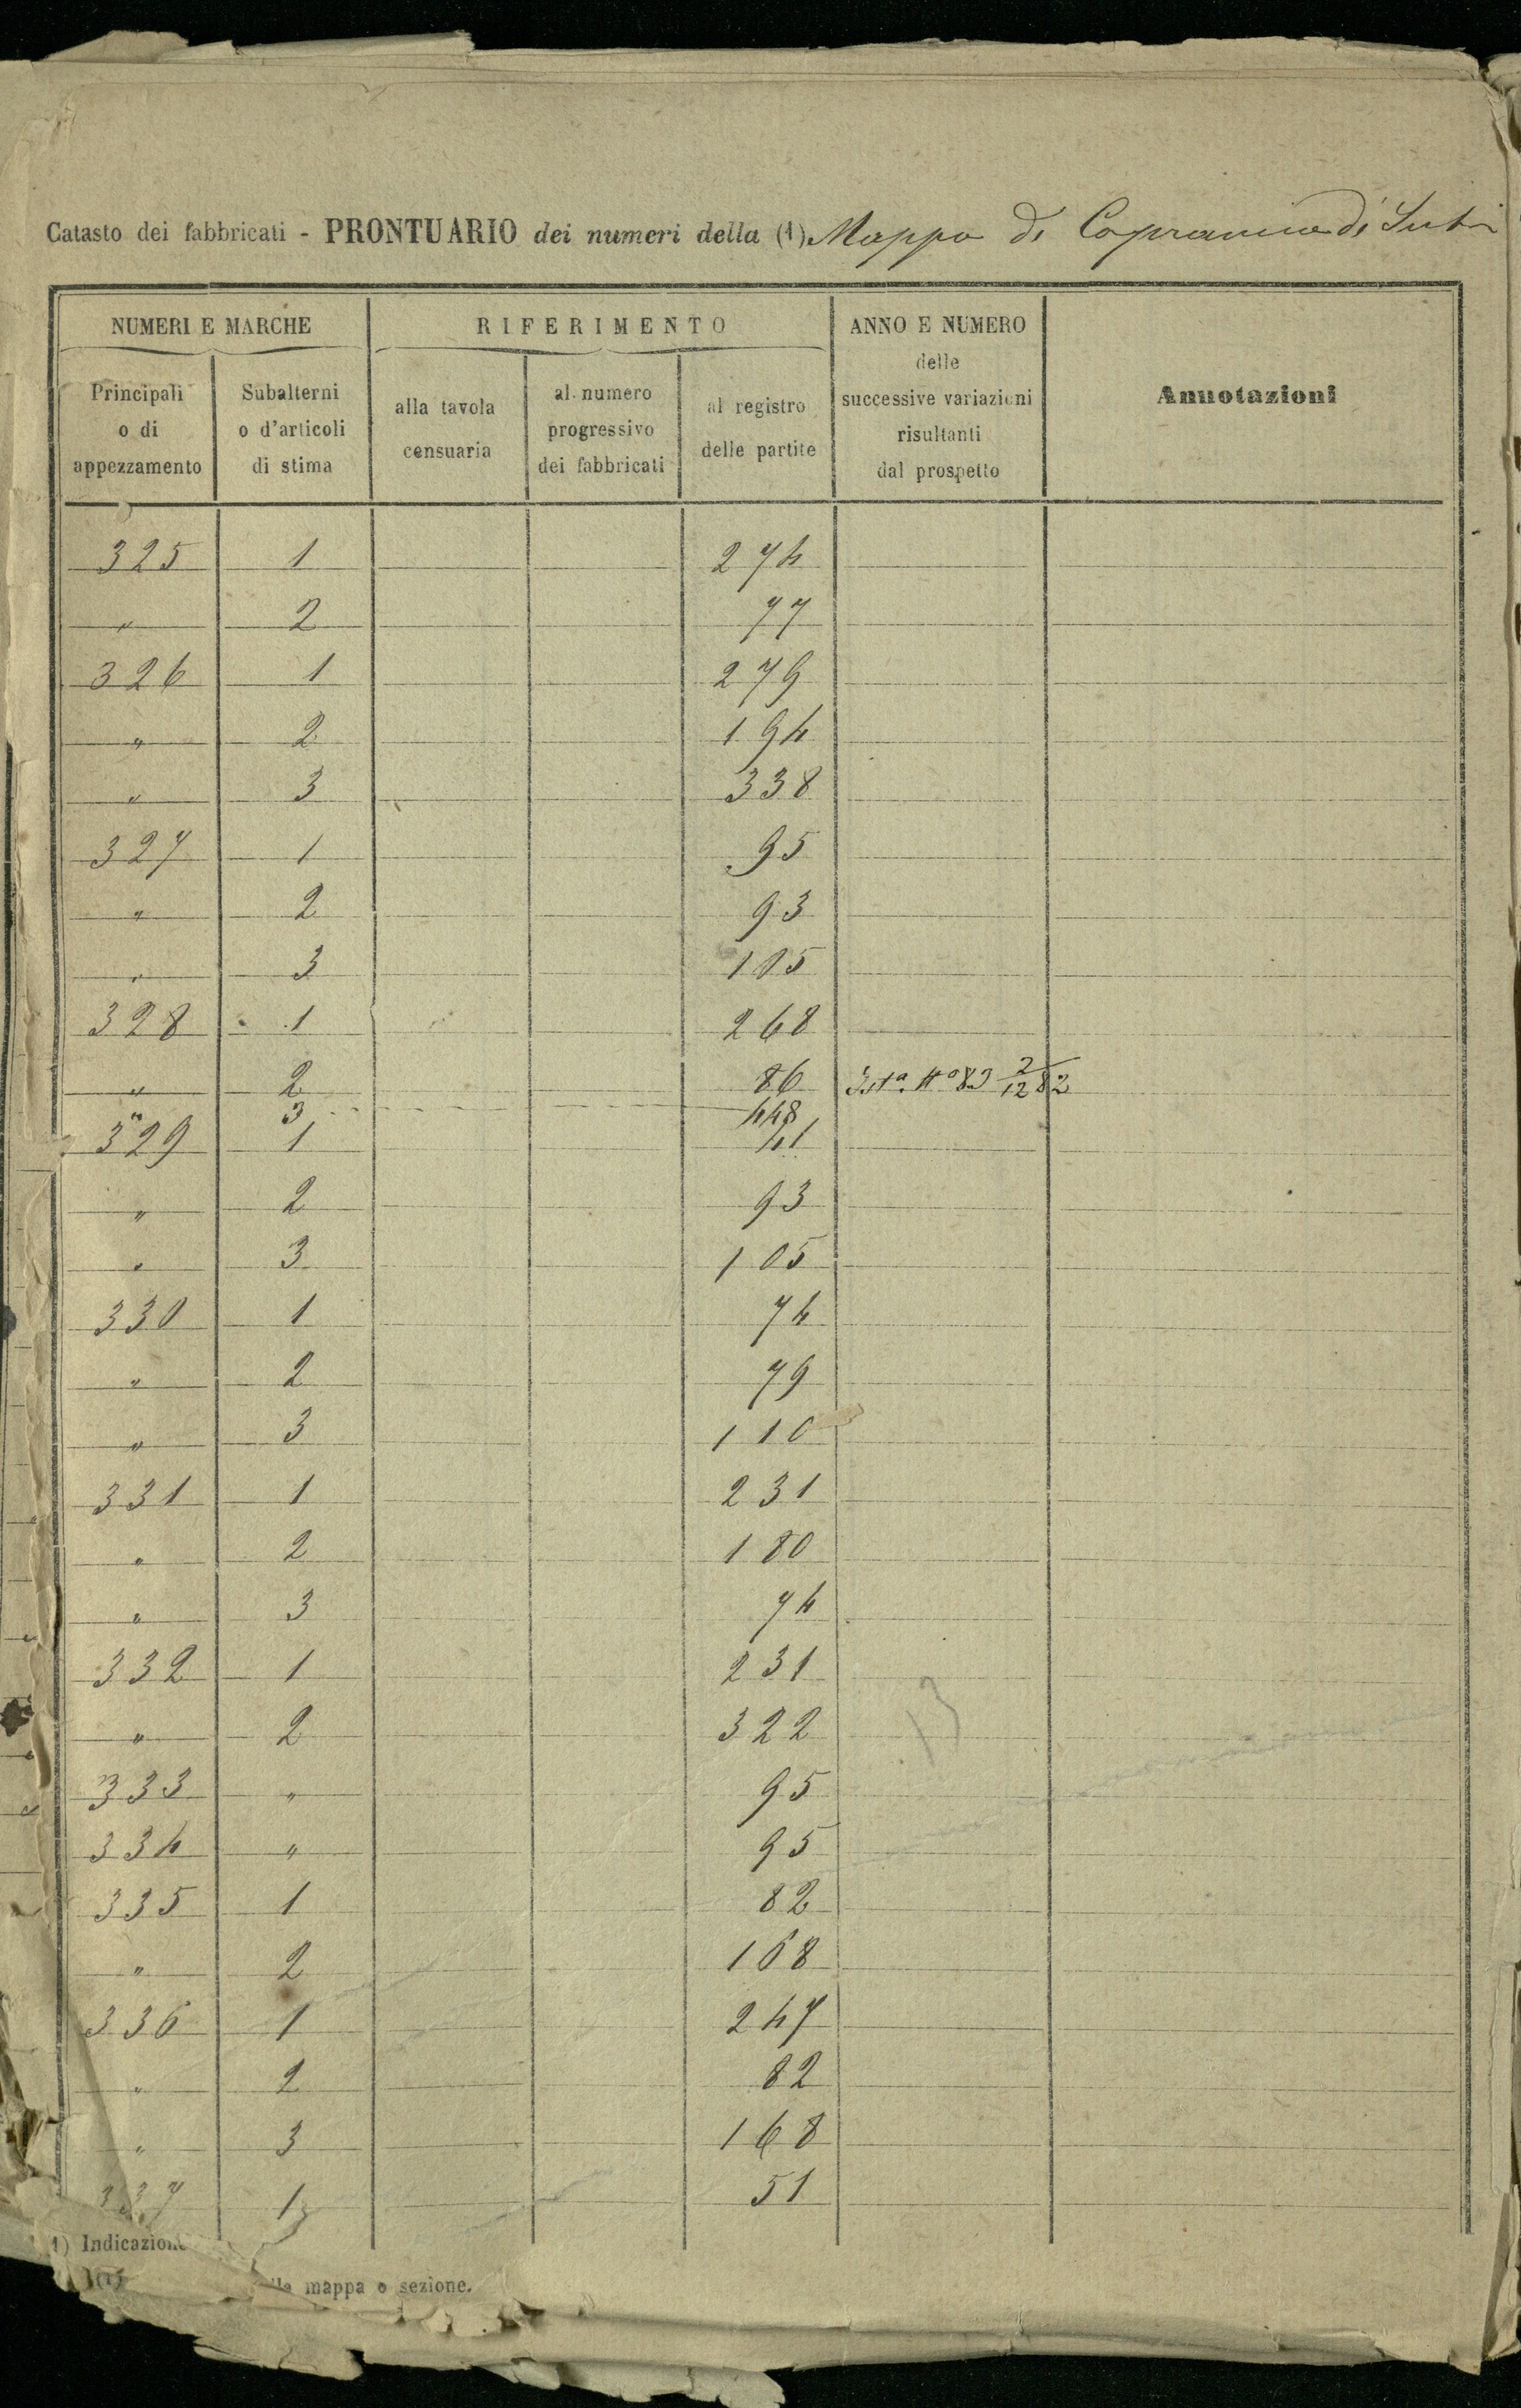 Catasto dei fabbricati - PRONTUARIO dei numeri della (1) Mappa di Capranica di Sutri
NUMERI E MARCHE
RIFERIMENTO
ANNO E NUMERO
delle
successive variazioni
risultanti
dal prospetto
Annotazioni
Principali
o di
appezzamento
Subalterni
o d'articoli
di stima
alla tavola
censuaria
al numero
progressivo
dei fabbricati
al registro
delle partite
325 1 274
" 2 77
326 1 279
" 2 194
" 3 338
327 1 95
" 2 93
" 3 105
328 1 268
" 2 86 No 83 2/12 82
" 3 448
329 1 41
" 2 93
" 3 105
330 1 74
" 2 79
" 3 110
331 1 231
" 2 180
" 3 74
332 1 231
" 2 322
13
333 " 95
334 " 95
335 1 82
" 2 168
336 1 247
" 2 82
" 3 168
337 1 51
1) Indicazione
mappa o sezione.